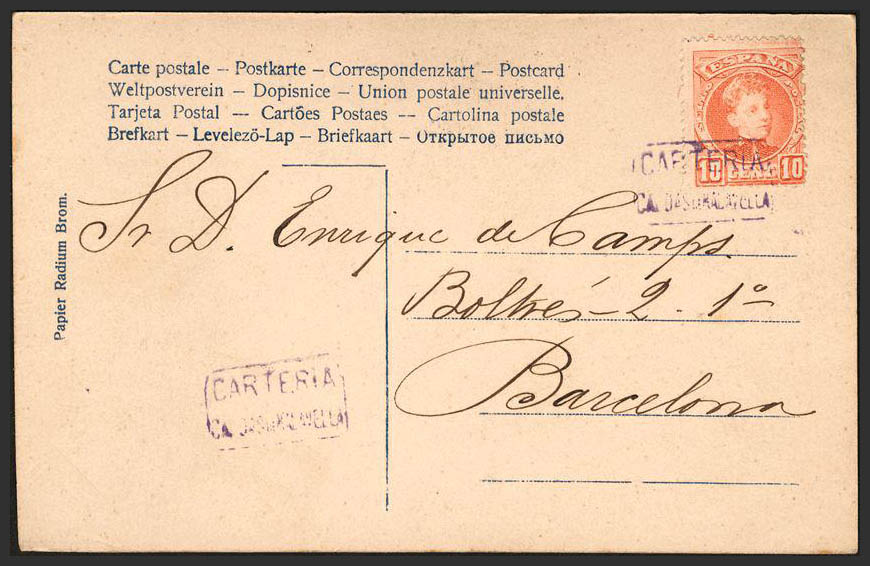 Carte postale – Postkarte – Correspondenzkart – Postcard
Weltpostverein – Dopisnice – Union postale universelle.
Tarjeta Postal — Cartões Postaes -- Cartolina postale
Brefkart – Levelezö-Lap – Briefkaart – Открытое письмо
ESPAÑA
10 CENT 10
CARTERIA
Sr D. Enrique de Camps
2 - 1º
Barcelona
CARTERIA
Papier Radium Brom.